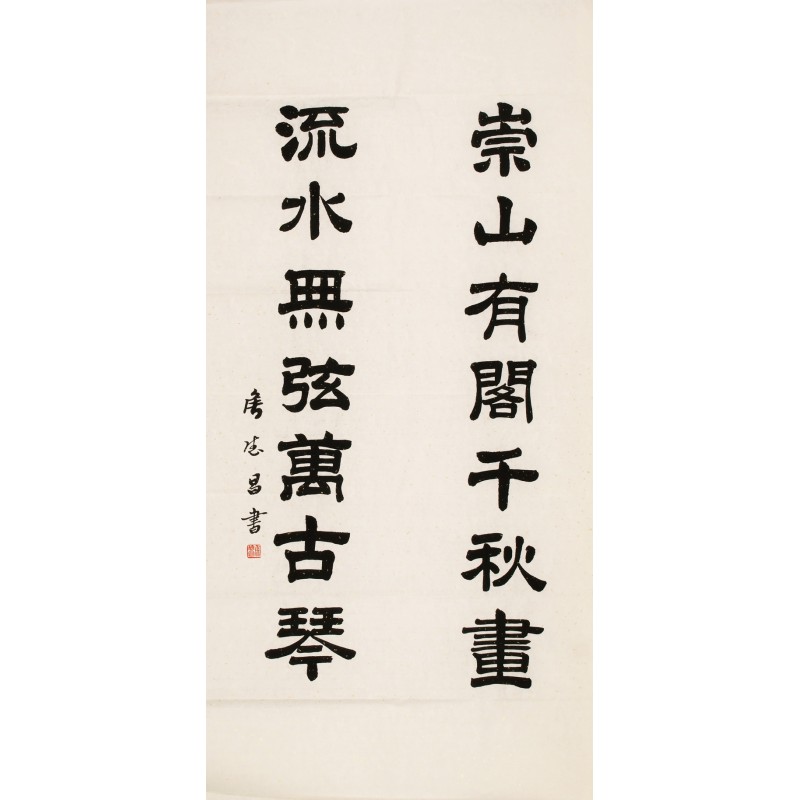 崇山有閣千秋畫
流水無弦萬古琴
昌書